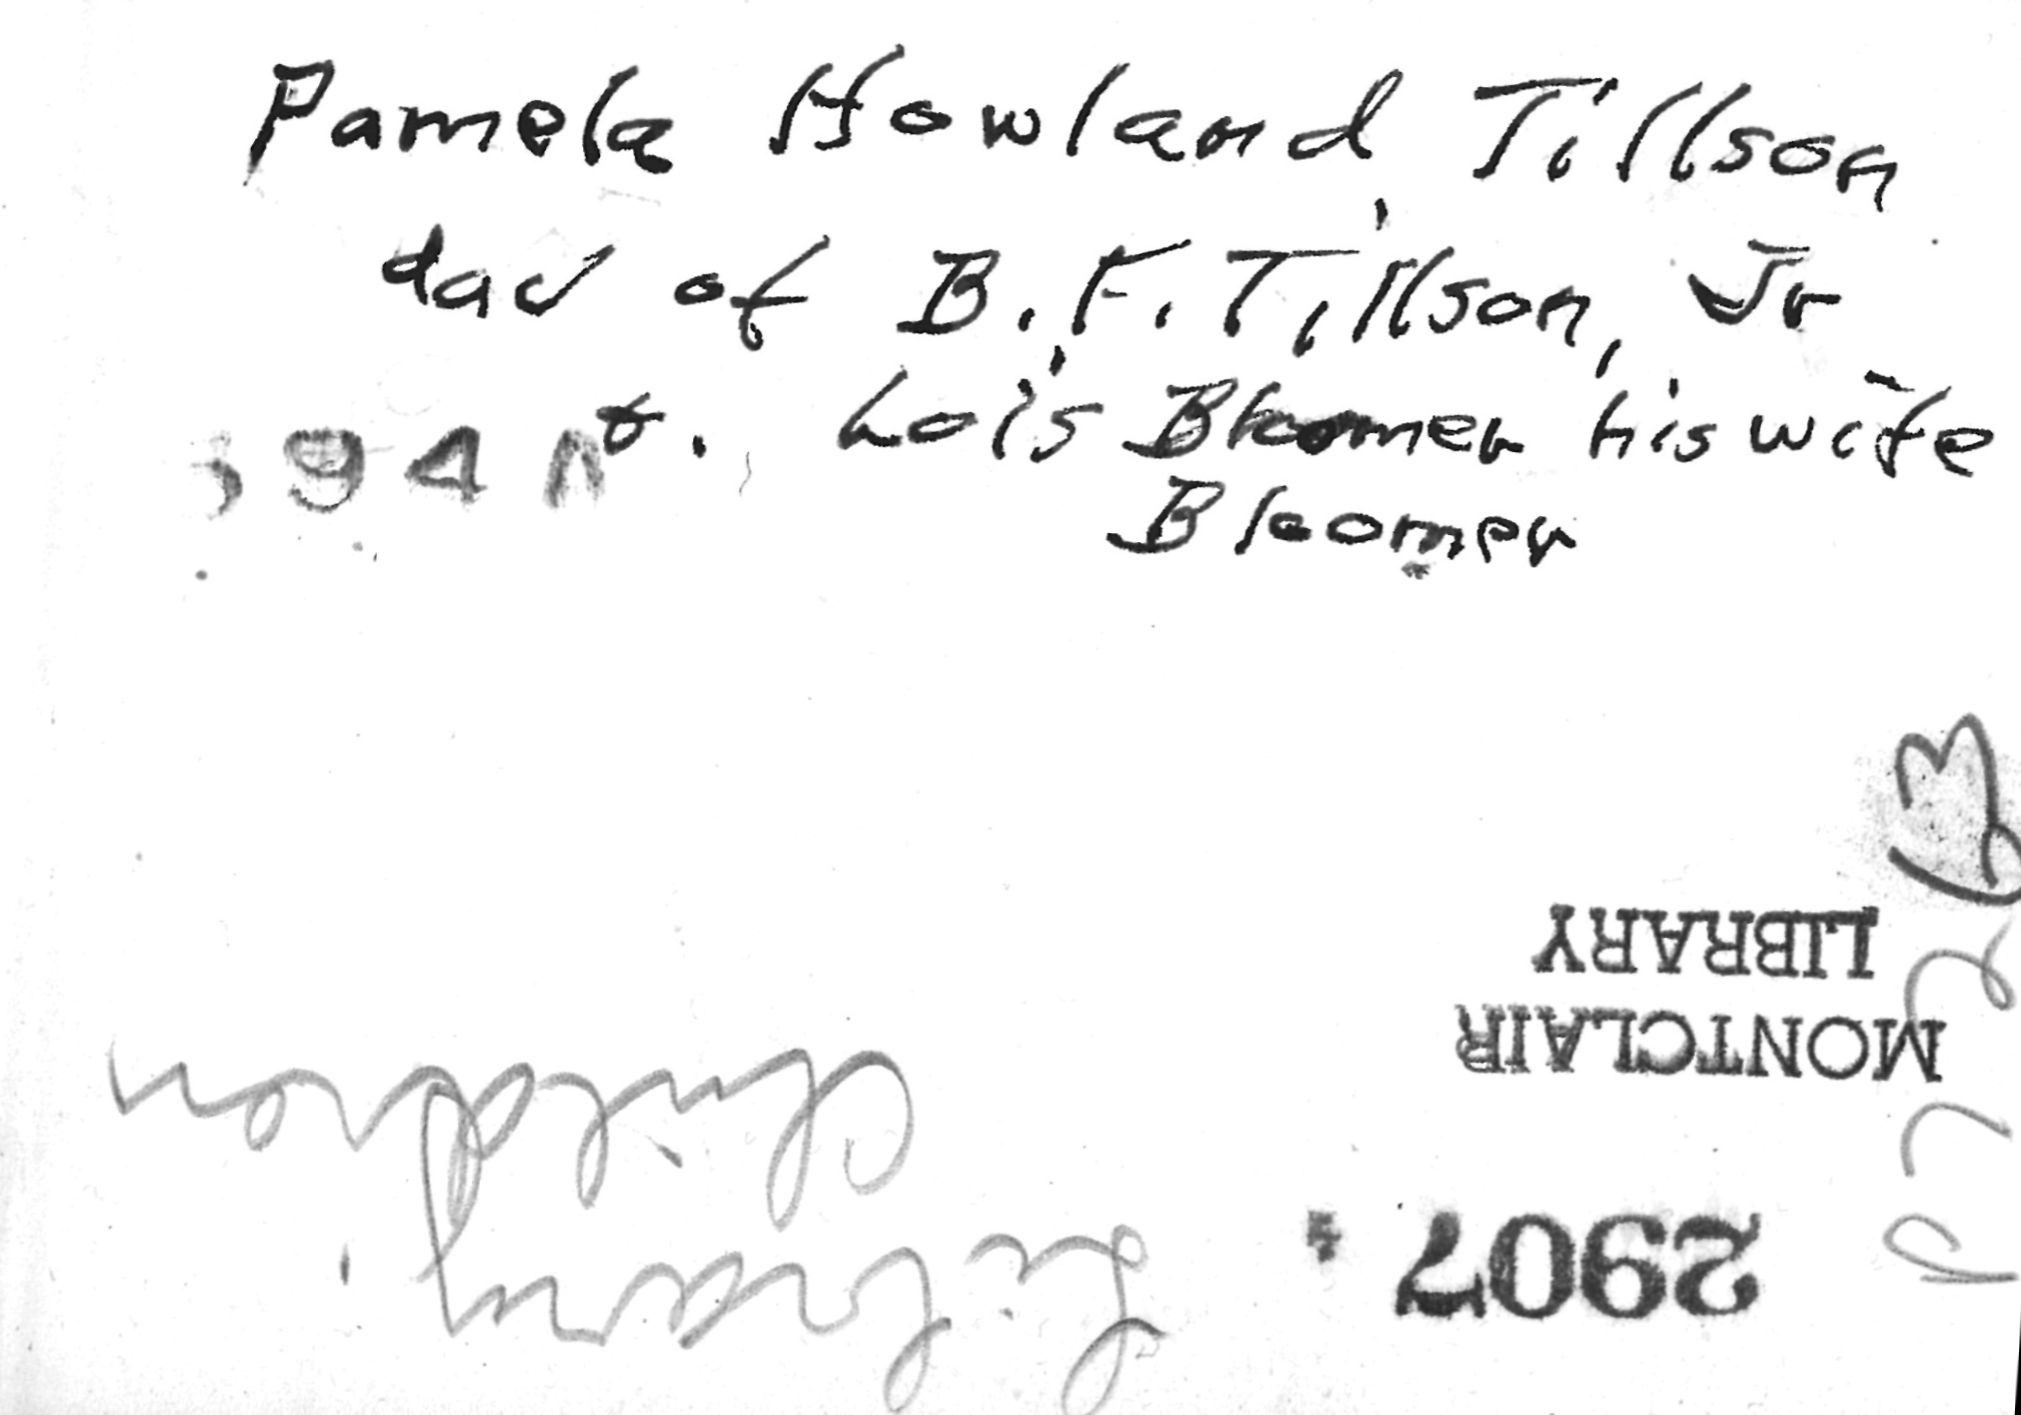 Pamela Howland Tillson
dau of B.F. Tillson, Jr
&. Lois Bloomer his wife
Bloomer
194
2907
MONTCLAIR
LIBRARY
Library
children